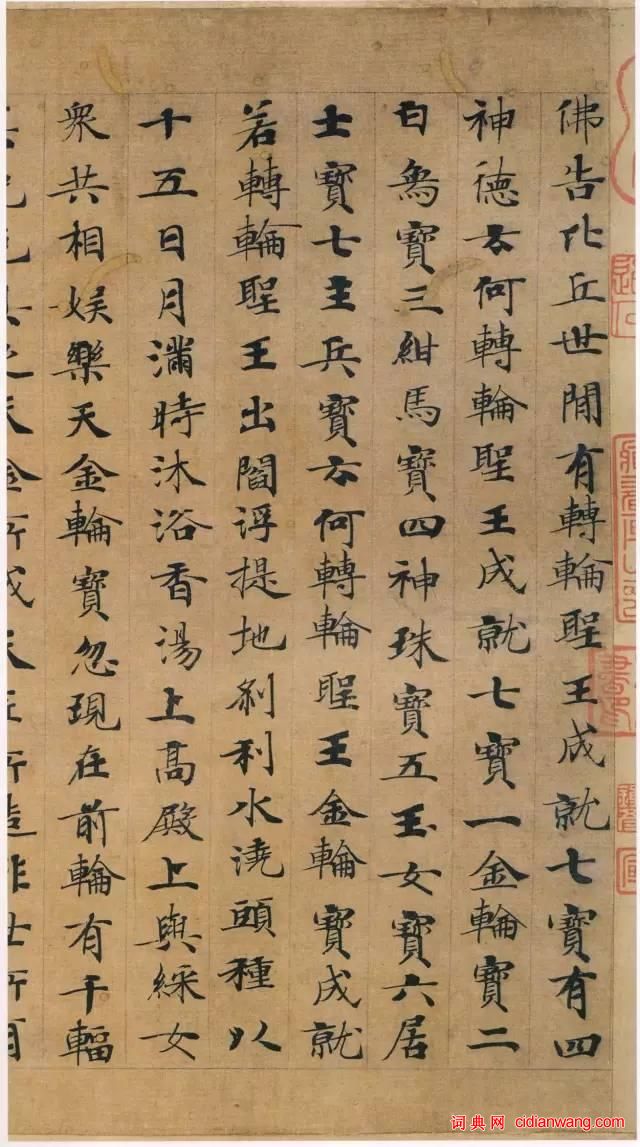 佛告比丘世間有轉輪聖王成就七寶有四
神德云何轉輪聖王成就七寶一金輪寶二
白象寶三紺馬寶四神珠寶五玉女寶六居
士寶七主兵寶云何轉輪聖王金輪寶成就
若轉輪聖王出閻浮提地刹利水澆頭種以
十五日月滿時沐浴香湯上高殿上與綵女
衆共相娛樂天金輪寶忽現在前輪有千輻
光色具足天金所成天匠所造非世所有
词典网 cidianwang.com